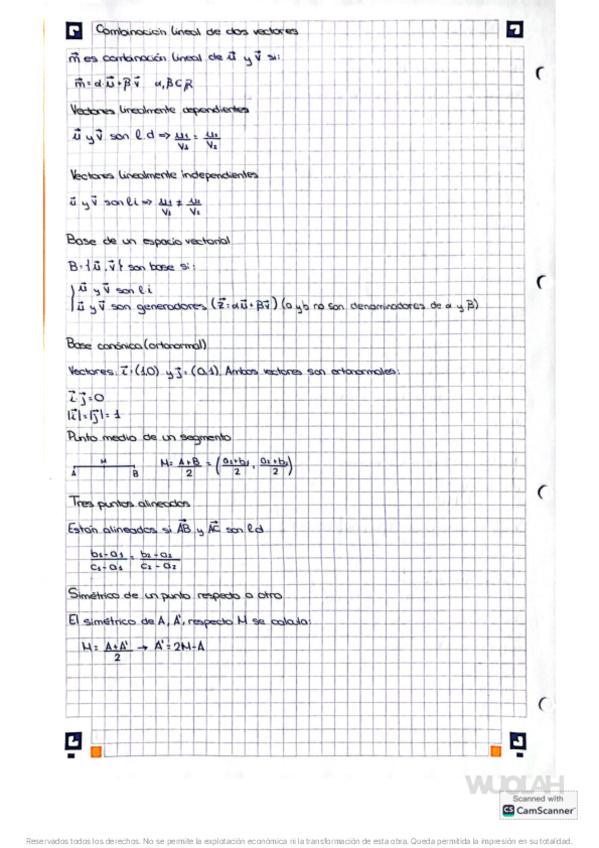 Combinación lineal de dos vectores
m⃗ es combinación lineal de u⃗ y v⃗ si:
m⃗ = α·u⃗ + β·v⃗   α, β ∈ R
Vectores linealmente dependientes
u⃗ y v⃗ son l.d => u₁/v₁ = u₂/v₂
Vectores linealmente independientes
u⃗ y v⃗ son l.i => u₁/v₁ ≠ u₂/v₂
Base de un espacio vectorial
B = {u⃗, v⃗} son base si:
u⃗ y v⃗ son l.i
u⃗ y v⃗ son generadores (z⃗ = αu⃗ + βv⃗) (a y b no son denominadores de α y β)
Base canónica (ortonormal)
Vectores: i⃗ = (1,0) y j⃗ = (0,1). Ambos vectores son ortonormales:
i⃗·j⃗ = 0
|i⃗| = |j⃗| = 1
Punto medio de un segmento
A M B   M = A+B/2 = (a₁+b₁/2, a₂+b₂/2)
Tres puntos alineados
Están alineados si AB⃗ y AC⃗ son l.d
b₁-a₁/c₁-a₁ = b₂-a₂/c₂-a₂
Simétrico de un punto respecto a otro
El simétrico de A, A', respecto M se calcula:
M = A+A'/2 → A' = 2M-A
WUOLAH
Scanned with
CS CamScanner
Reservados todos los derechos. No se permite la explotación económica ni la transformación de esta obra. Queda permitida la impresión en su totalidad.